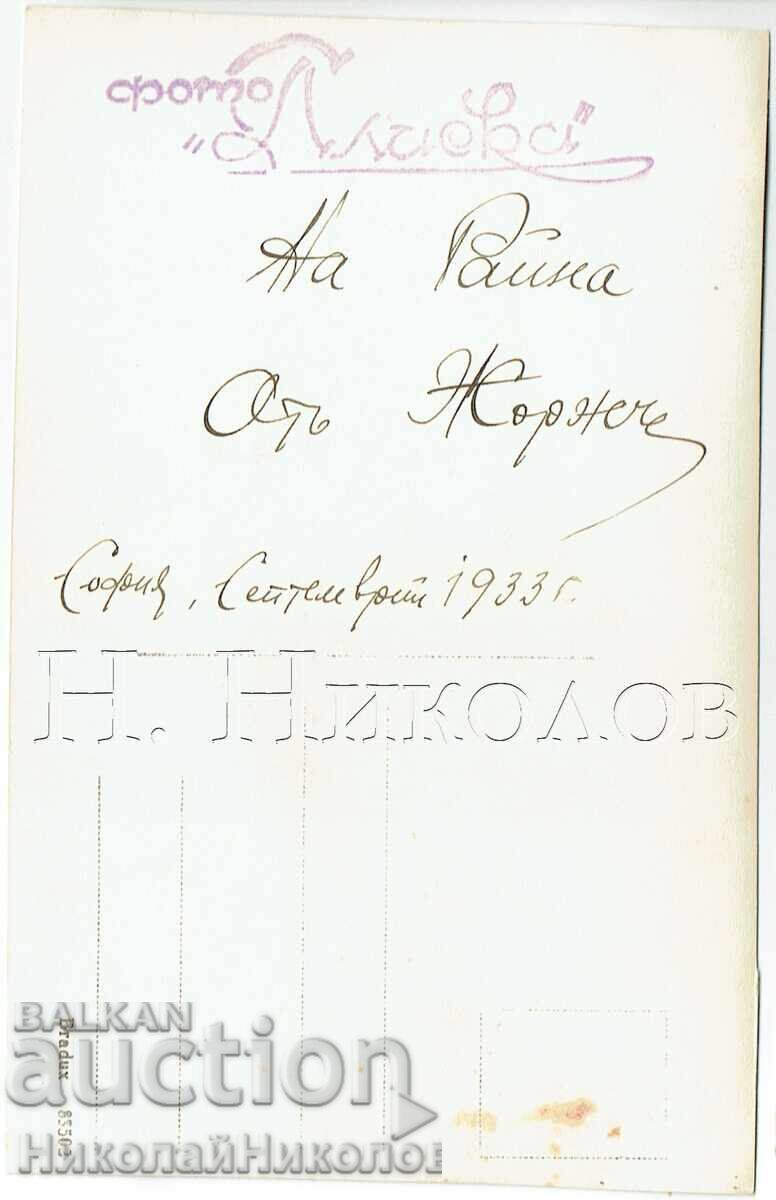 фото
На Райна
Отъ Жоржче
София, Септемврий 1933 г.
Н. Николов
BALKAN
auction
НиколайНиколов